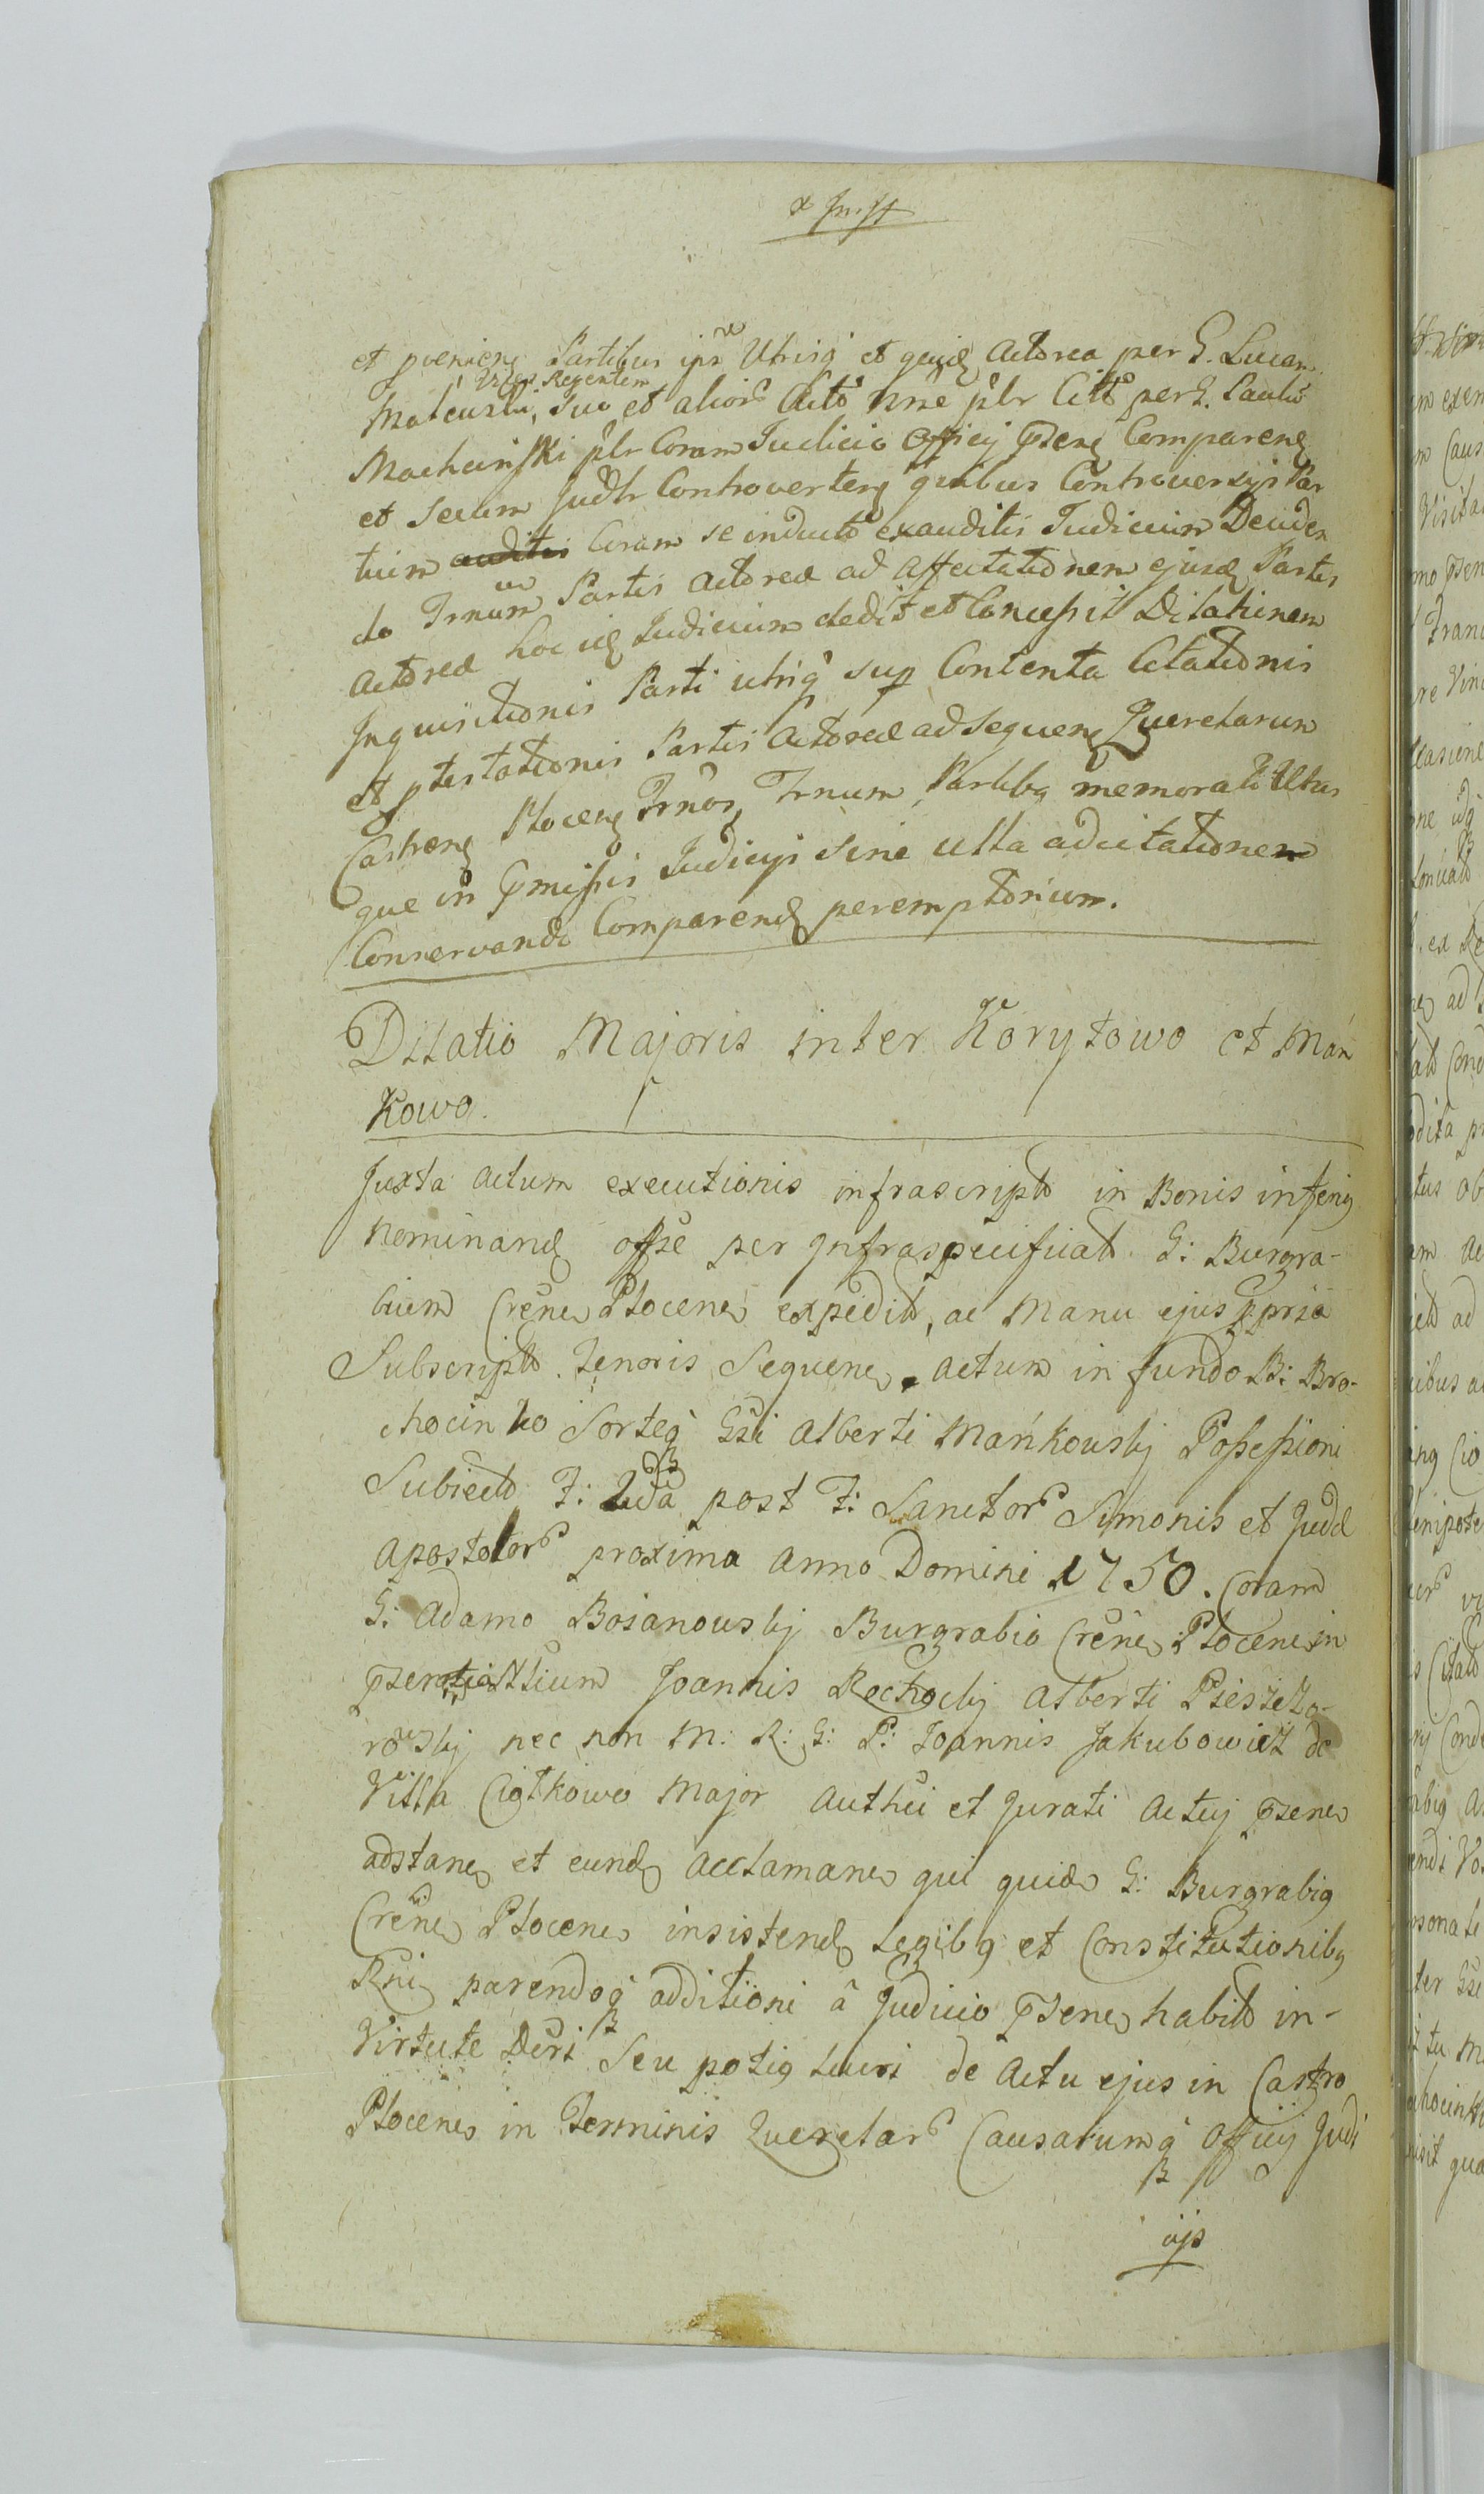 et pveniens Partibus ipis Utrisq et quid Actorea per G. Lucam
Vices Regentem
Makuski, suo et alior Acto nne plr Citt per G. Paulu
Machciński plr Coram Judicio Officij psens Comparens
et Secum Judlr Controvertens quibus Controversijs Par
tium auditis Coram se inducto exauditis Judicium Decuden
do Trnum Partis Actoreæ ad affectationem ejusd Partis
Actoreæ hoc id Judicium dedit et Concessit Dilationem
Inquisitionis Parti utriq sup Contenta Citationis
et ptestationis Partis Actoreæ ad sequens Querelarum
Castrens Plocens Trnos, Trnum Partibq memorati Utris
que in pmissis Judicijs sine ulla adcitatione
Conservando Comparend peremptorium.
Dilatio Majoris inter Korytowo et Mań
kowo.
Juxta Actum executionis infrascript in Bonis inferiq
Nominand offse per Infraspecificat G: Burgra-
bium Crenes Plocenes expedit, ac Manu ejus ppria
Subscript. Tenoris Sequenes. Actum in fundo B: Bro-
chocinko Sorteq Gsi Alberti Mańkowskj Possessioni
Subiecto F: 2da post F: Sanctor Simonis et Judæ
Apostolor proxima Anno Domini 1750. Coram
G: Adamo Bojanowskj Burgrabio Crenes Plocenes in
psentia Nlium Joannis Rechockj Alberti
rowskj nec non M: R: G: P: Joannis Jakubowicz de
Villa Ciotkowo Major Authci et Jurati Actuj psenes
adstanes et eund acclamanes qui quidem G: Burgrabiq
Crenes Plocenes insistend Legibq et Constitutionibq
Rni parendoq additioni â Judicio psenes habito in-
Virtute Dcri Seu potiq Lucri de Actu ejus in Castro
Plocenes in Terminis Querelar Causarumq Officij Judi
cijs